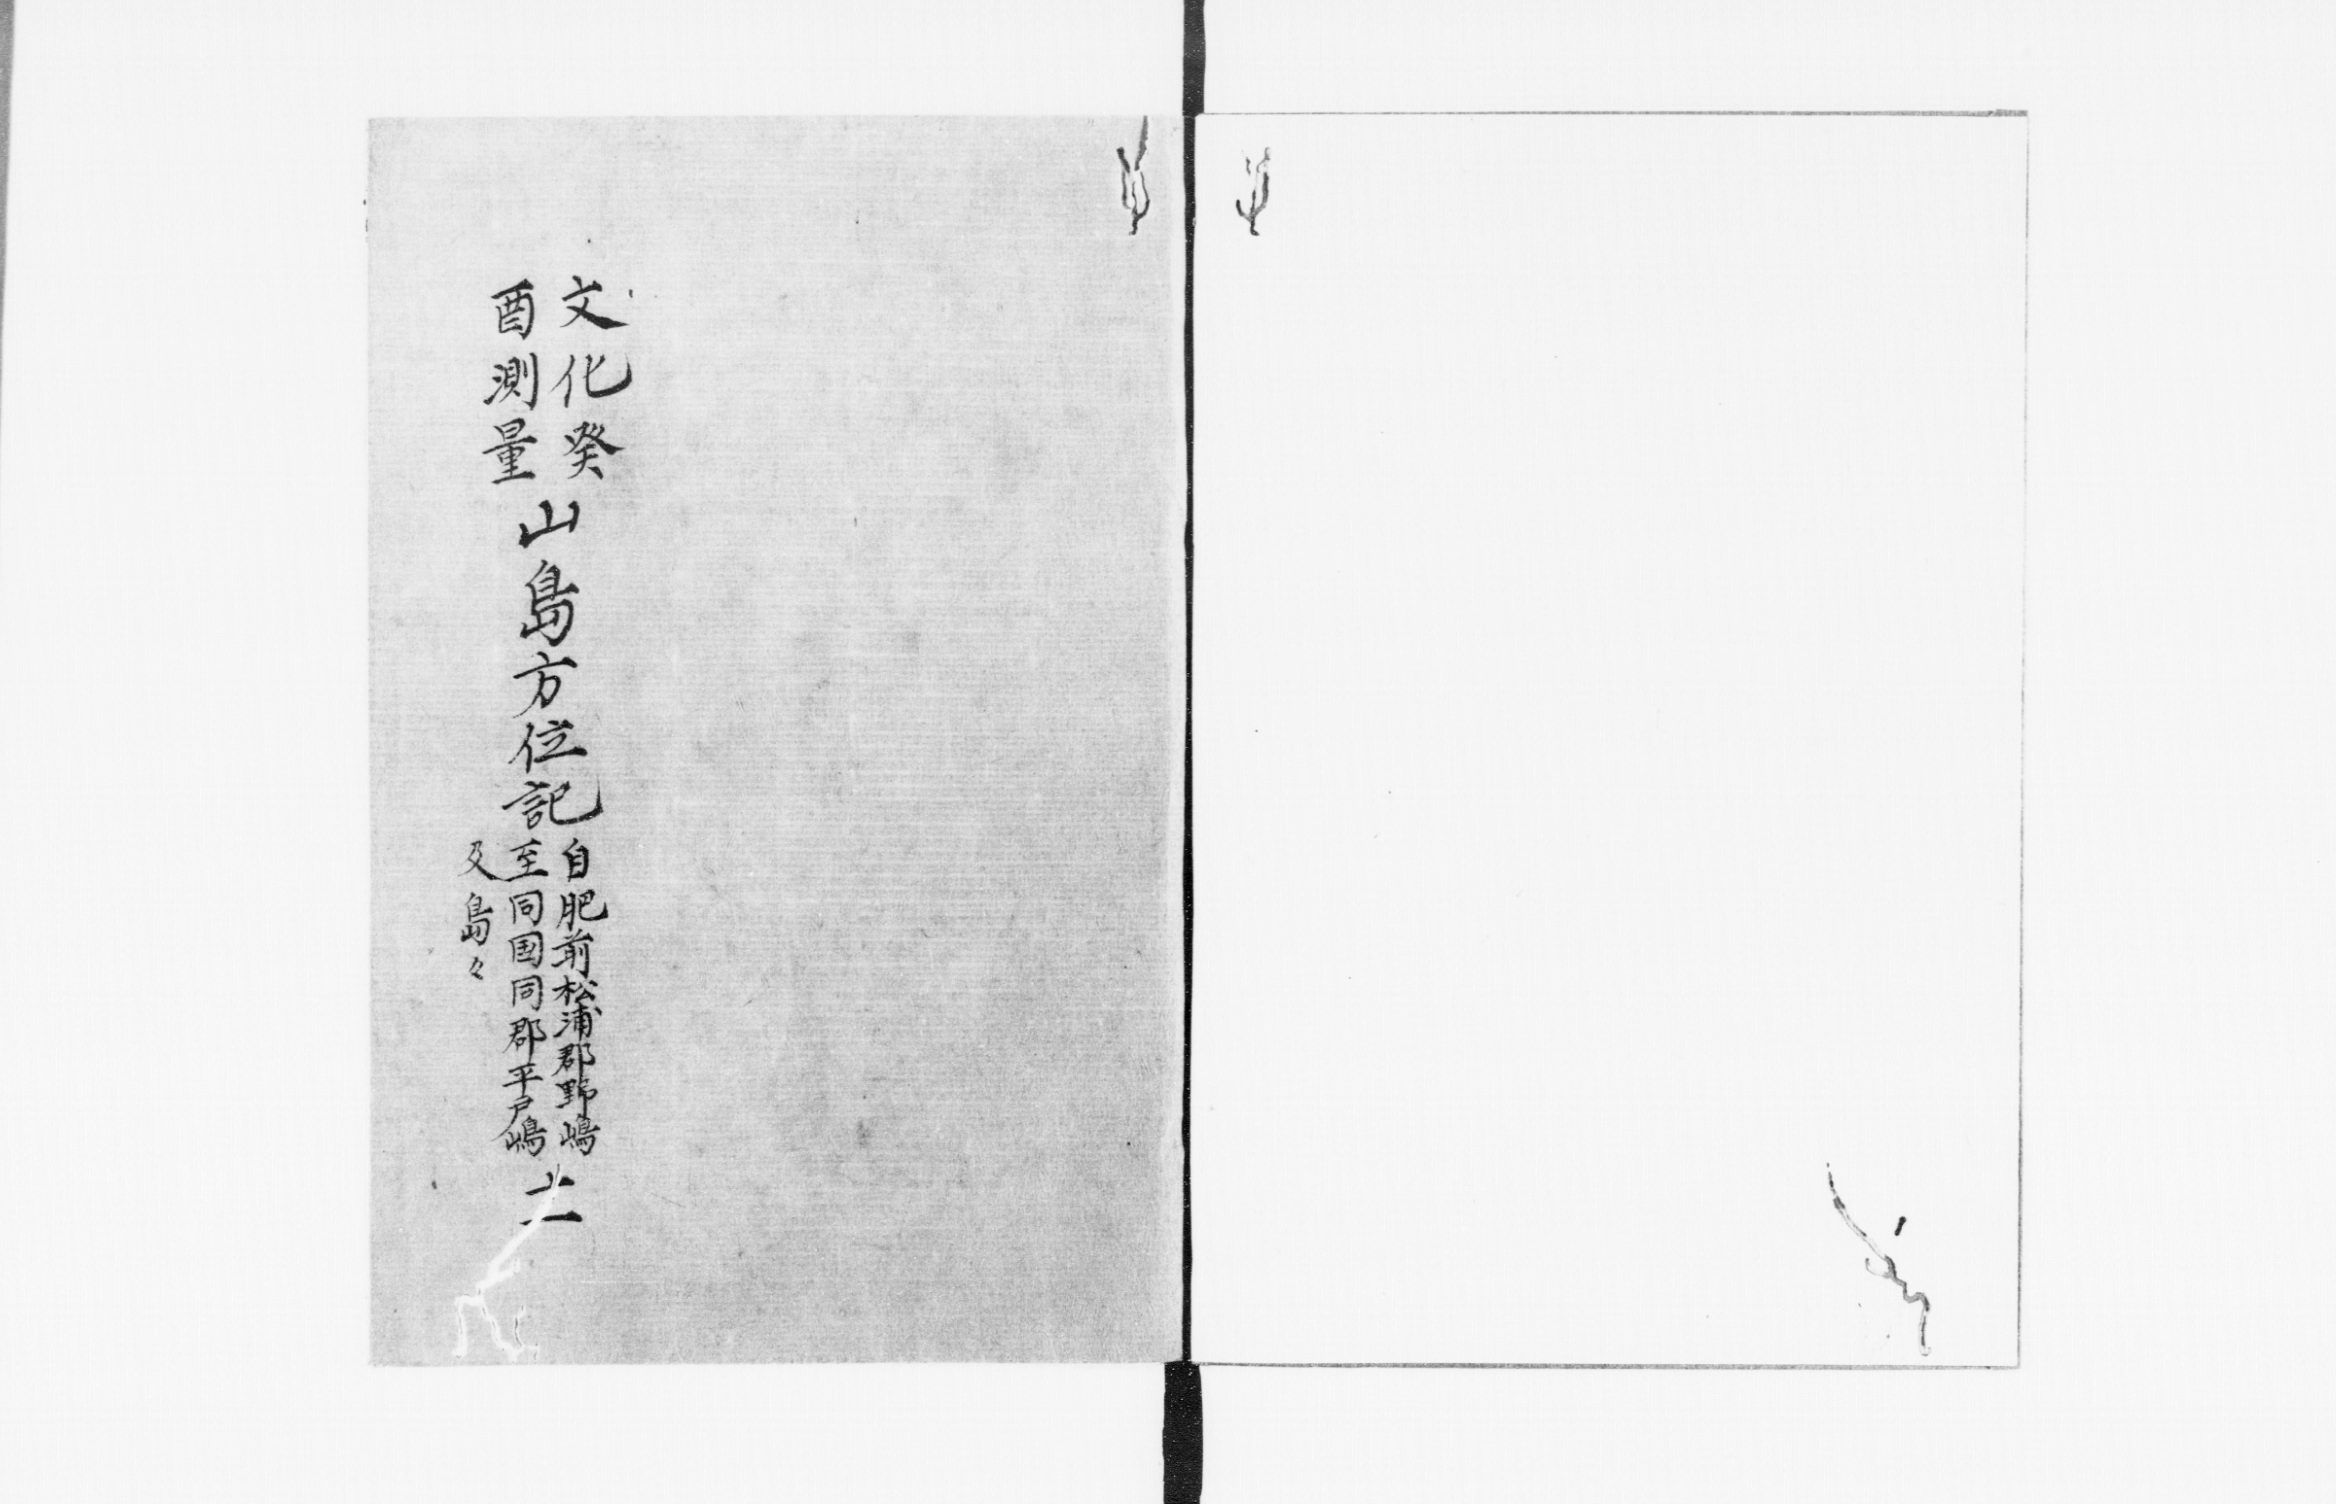 文化癸
酉測量
山島方位記
自肥前松浦郡野嶋
至同国同郡平戸嶋
及島々